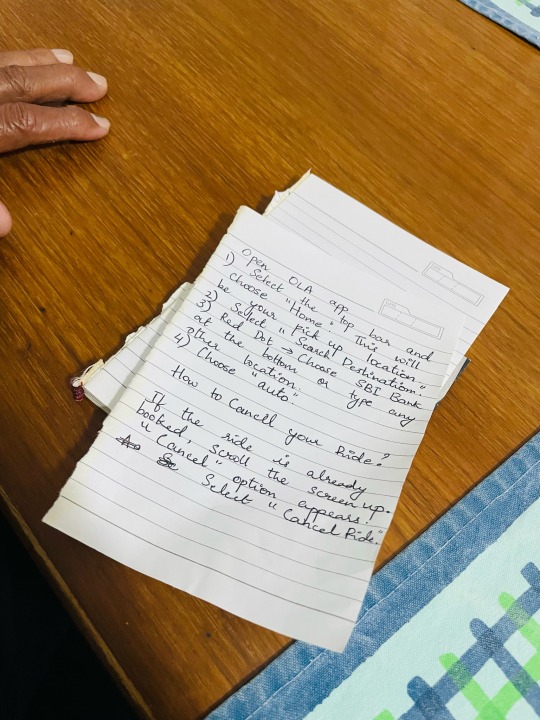 Open OLA app
1) Select the top bar and
choose "Home". This will
be your "pick up location."
2) Select "Search Destination."
3) Red Dot → Choose SBI Bank
at the bottom or type any
other location.
4) Choose "auto".
How to Cancell your Ride?
If the ride is already
booked, scroll the screen up.
"Cancel" option appears.
Select "Cancel Ride."